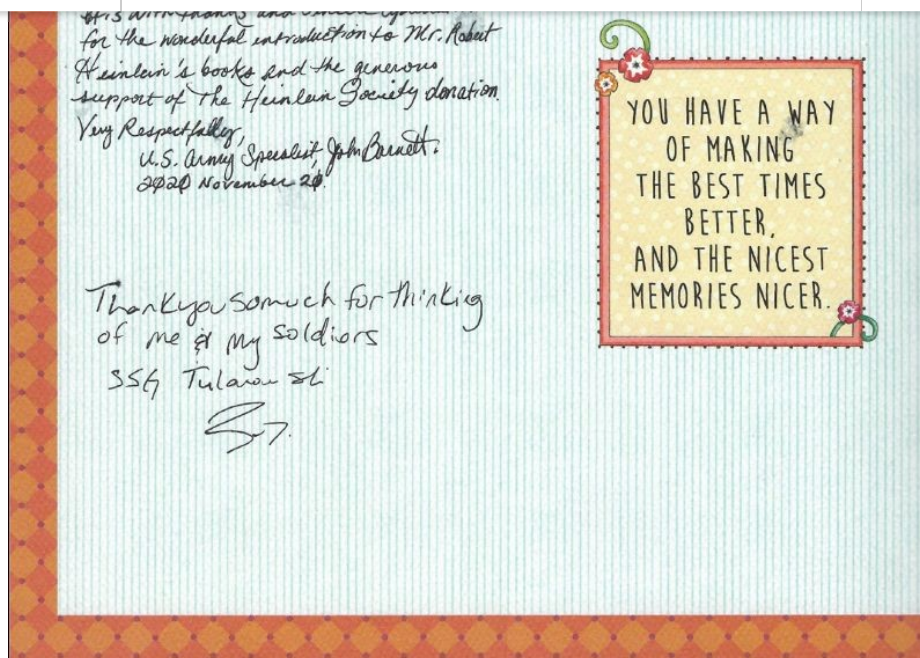 with thanks and
for the wonderful introduction to Mr. Robert
Heinlein's books and the generous
support of The Heinlein Society donation.
Very Respectfully,
U.S. Army Specialist, John Barnett.
2020 November 20.
Thank you so much for thinking
of me & my soldiors
SSG
YOU HAVE A WAY
OF MAKING
THE BEST TIMES
BETTER,
AND THE NICEST
MEMORIES NICER.